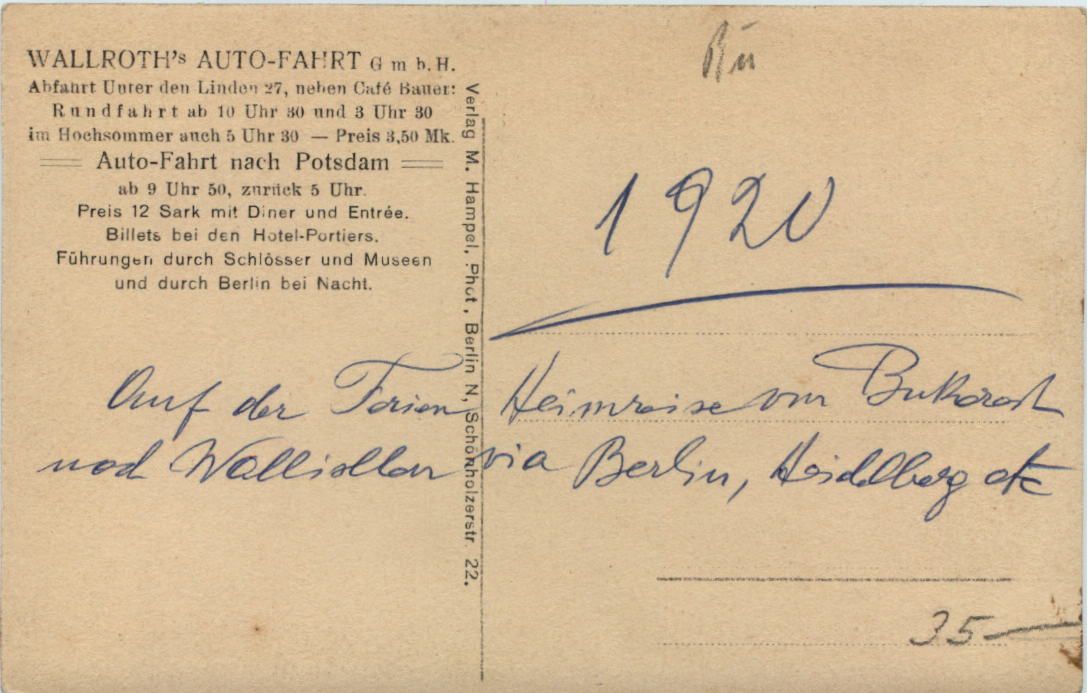 WALLROTH's AUTO-FAHRT G m b. H.
Abfahrt Unter den Linden 27, neben Café Bauer:
Rundfahrt ab 10 Uhr 30 und 3 Uhr 30
im Hochsommer auch 5 Uhr 30 — Preis 3,50 Mk.
Auto-Fahrt nach Potsdam
ab 9 Uhr 50, zurück 5 Uhr.
Preis 12 Sark mit Diner und Entrée.
Billets bei den Hotel-Portiers.
Führungen durch Schlösser und Museen
und durch Berlin bei Nacht.
Verlag M. Hampel, Phot, Berlin N, Schönholzerstr 22.
1920
Auf der Ferien Heimreise von Bukarest
nach Wallisellen via Berlin, Heidelberg etc
35—